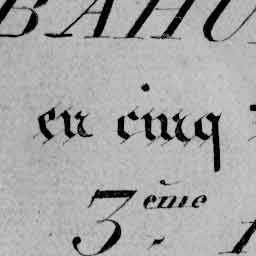 BAHU
en cinq
3ème